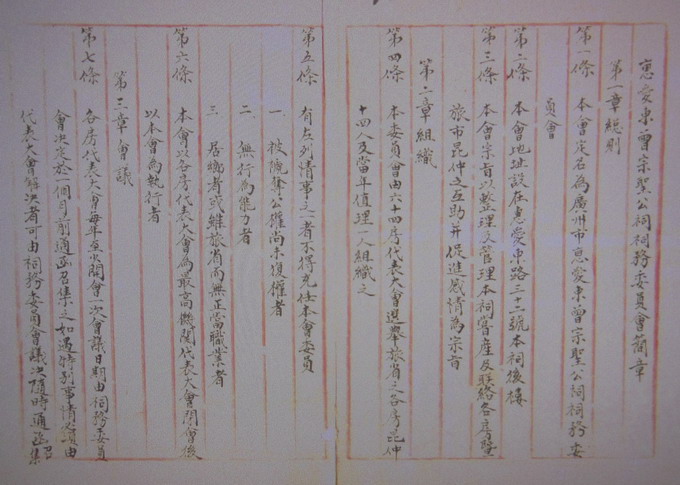 惠愛東曾宗聖公祠祠務委員會簡章
第一章總則
第一條 本會定名為廣州市惠愛東曾宗聖公祠祠務委
員會
第二條 本會地址設在惠愛中路三十二號本祠後樓
第三條 本會宗旨以整理及管理本祠嘗產及聯絡各房暨
旅市昆仲之互助并促進感情為宗旨
第二章組織
第四條 本委員會由六十四房代表大會選舉旅省之各房昆仲
十四人及當年值理一人組織之
第五條 有左列情事之一者不得充任本會委員
一 被褫奪公權尚未復權者
二 無行為能力者
三 居鄉者或雖旅省而無正當職業者
第六條 本會以各房代表大會為最高機関代表大會閉會後
以本會為執行者
第三章會議
第七條 各房代表大會每年至少開會一次會議日期由祠務委員
會決定於一個月前通函召集之如遇特別事情必須由
代表大會解決者可由祠務委員會議決隨時通函召集